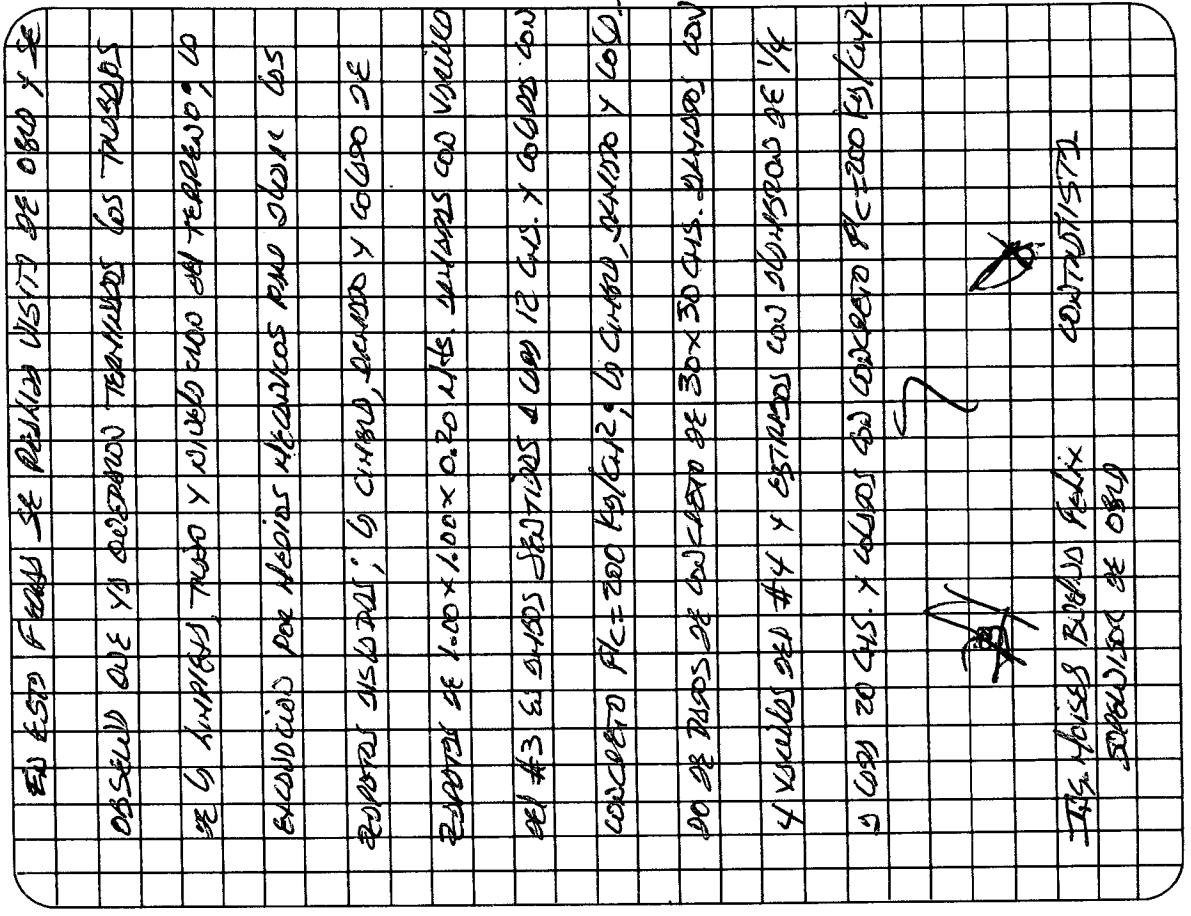 EN ESTA FECHA SE REALIZA VISITA DE OBRA Y SE
OBSERVA QUE YA QUEDARON TERMINADOS LOS TRABAJOS
DE LA LIMPIEZA, TRAZO Y NIVELACION DEL TERRENO; LA
EXCAVACION POR MEDIOS MECANICOS PARA ALOJAR LAS
ZAPATAS AISLADAS; LA CIMBRA, ARMADO Y COLADO DE
ZAPATAS DE 1.00 X 1.00 X 0.20 MTS. ARMADAS CON VARILLA
DEL #3 EN AMBOS SENTIDOS A CADA 12 CMS. Y COLADAS CON
CONCRETO F'C=200 KG/CM2; LA CIMBRA, ARMADO Y COLA-
DO DE DADOS DE CONCRETO DE 30 X 30 CMS. ARMADOS CON
4 VARILLAS DEL #4 Y ESTRIBOS CON ALAMBRON DE 1/4
A CADA 20 CMS. Y COLADOS CON CONCRETO F'C=200 KG/CM2
ING. MOISES FELIX CONTRATISTA
SUPERVISOR DE OBRA